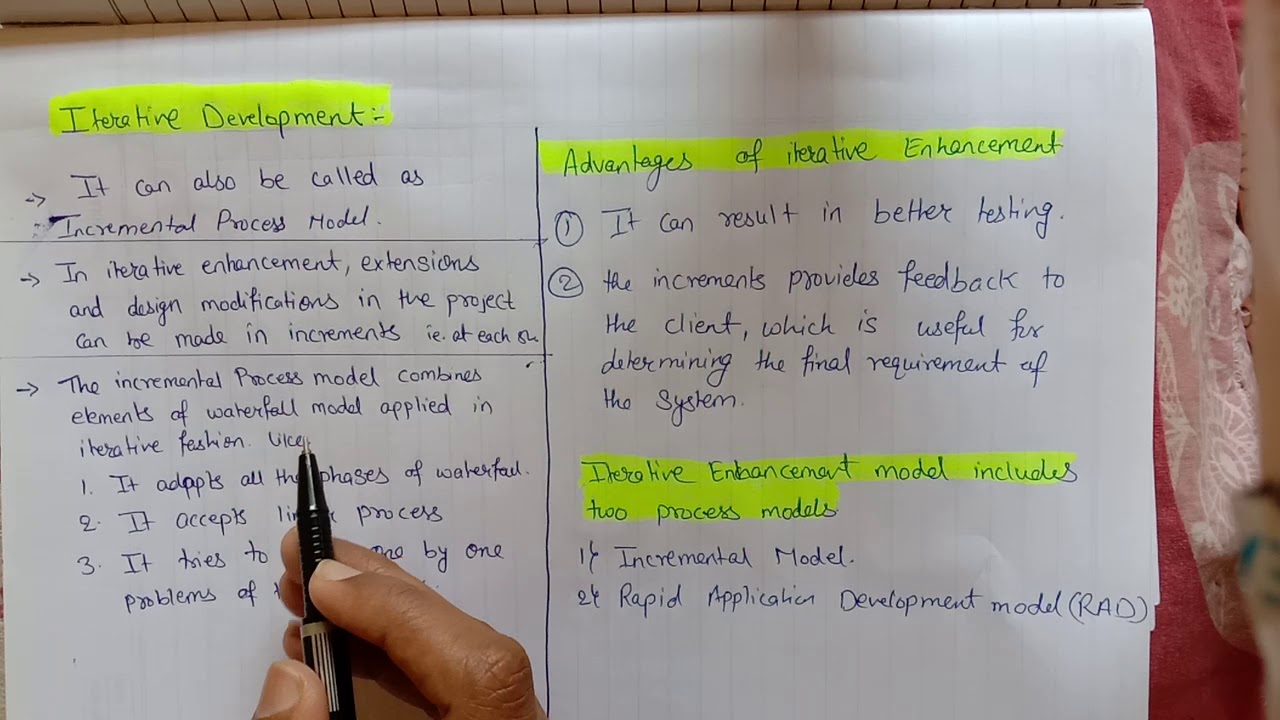 Iterative Development:-
→ It can also be called as
Incremental Process Model.
→ In iterative enhancement, extensions
and design modifications in the project
can be made in increments ie. at each
→ The incremental Process model combines
elements of waterfall model applied in
iterative feshion.
1. It adopts all the phases of waterfall.
2. It accepts process
3. It tries to one by one
problems of
Advantages of iterative Enhancement
① It can result in better testing.
② the increments provides feedback to
the client, which is useful for
determining the final requirement of
the System.
Iterative Enhancement model includes
two process models.
1} Incremental Model.
2} Rapid Application Development model (RAD)